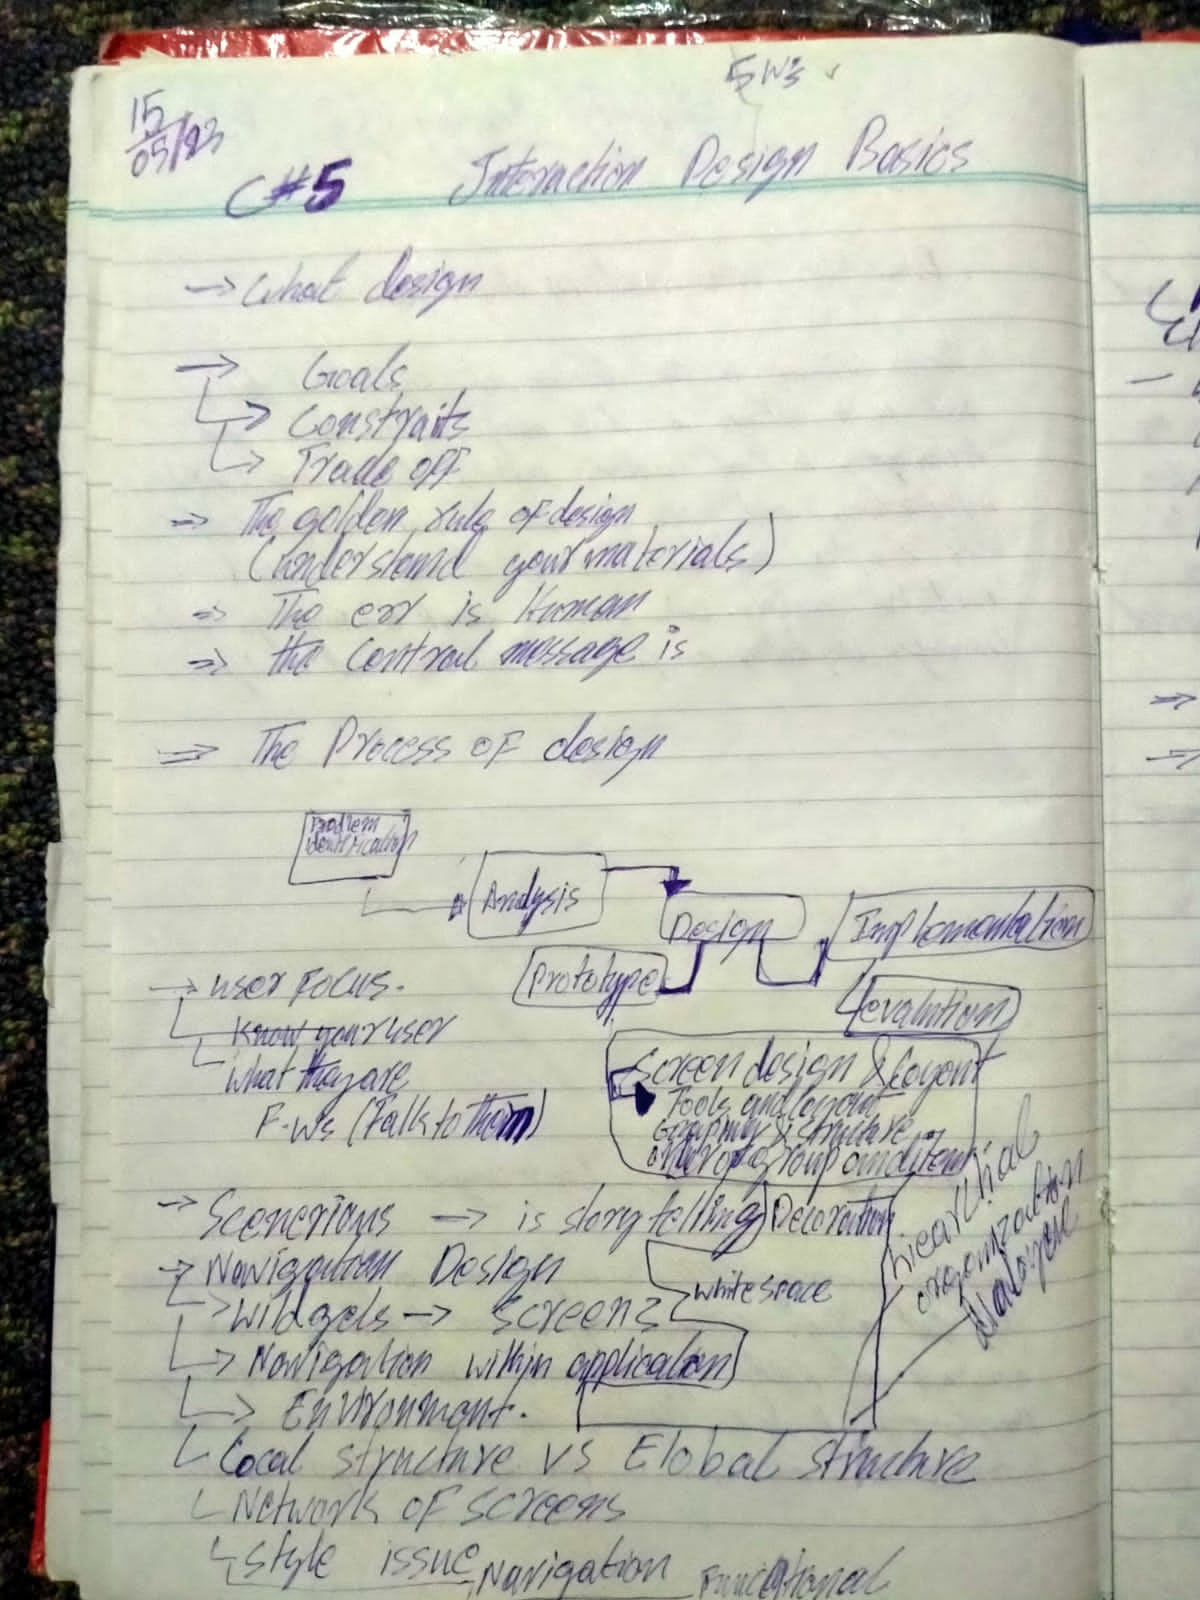 5 W's
15
05/23
C#5 Interaction Design Basics
→ What design
→ Goals
→ Constraits
→ Trade off
⇒ The golden rule of design
(understand your materials)
⇒ The err is Human
⇒ the Central message is
⇒ The Process of design
Problem
identification
Analysis
Design
Implementation
Prototype
evalution
→ user Focus.
Know your user
what they are
F-Ws (Talk to them)
Screen design & layout
Tools and layout
Grouping & structure
order of group and item
→ Scenerious → is story telling
Decoration
→ Navigation Design
white space
→ Wildgels → Screens
→ Navigation within application
→ Environment.
hiearchial
organization
dialogue
Local structure vs Elobal structure
Network of screens
style issue
Navigation Functional